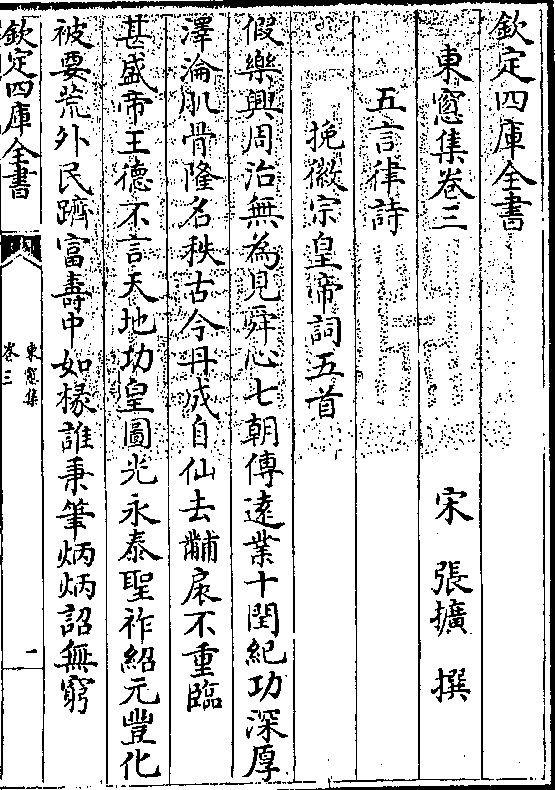 欽定四庫全書
東窓集卷三
宋 張擴 撰
五言律詩
挽徽宗皇帝詞五首
假樂興周治無為見舜心七朝傳遠業十閏紀功深厚
澤淪肌骨隆名秩古今丹成自仙去黼扆不重臨
甚盛帝王德不言天地功皇圖光永泰聖祚紹元豐化
被要荒外民躋富壽中如椽誰秉筆炳炳詔無窮
欽定四庫全書
東窓集
卷三
一